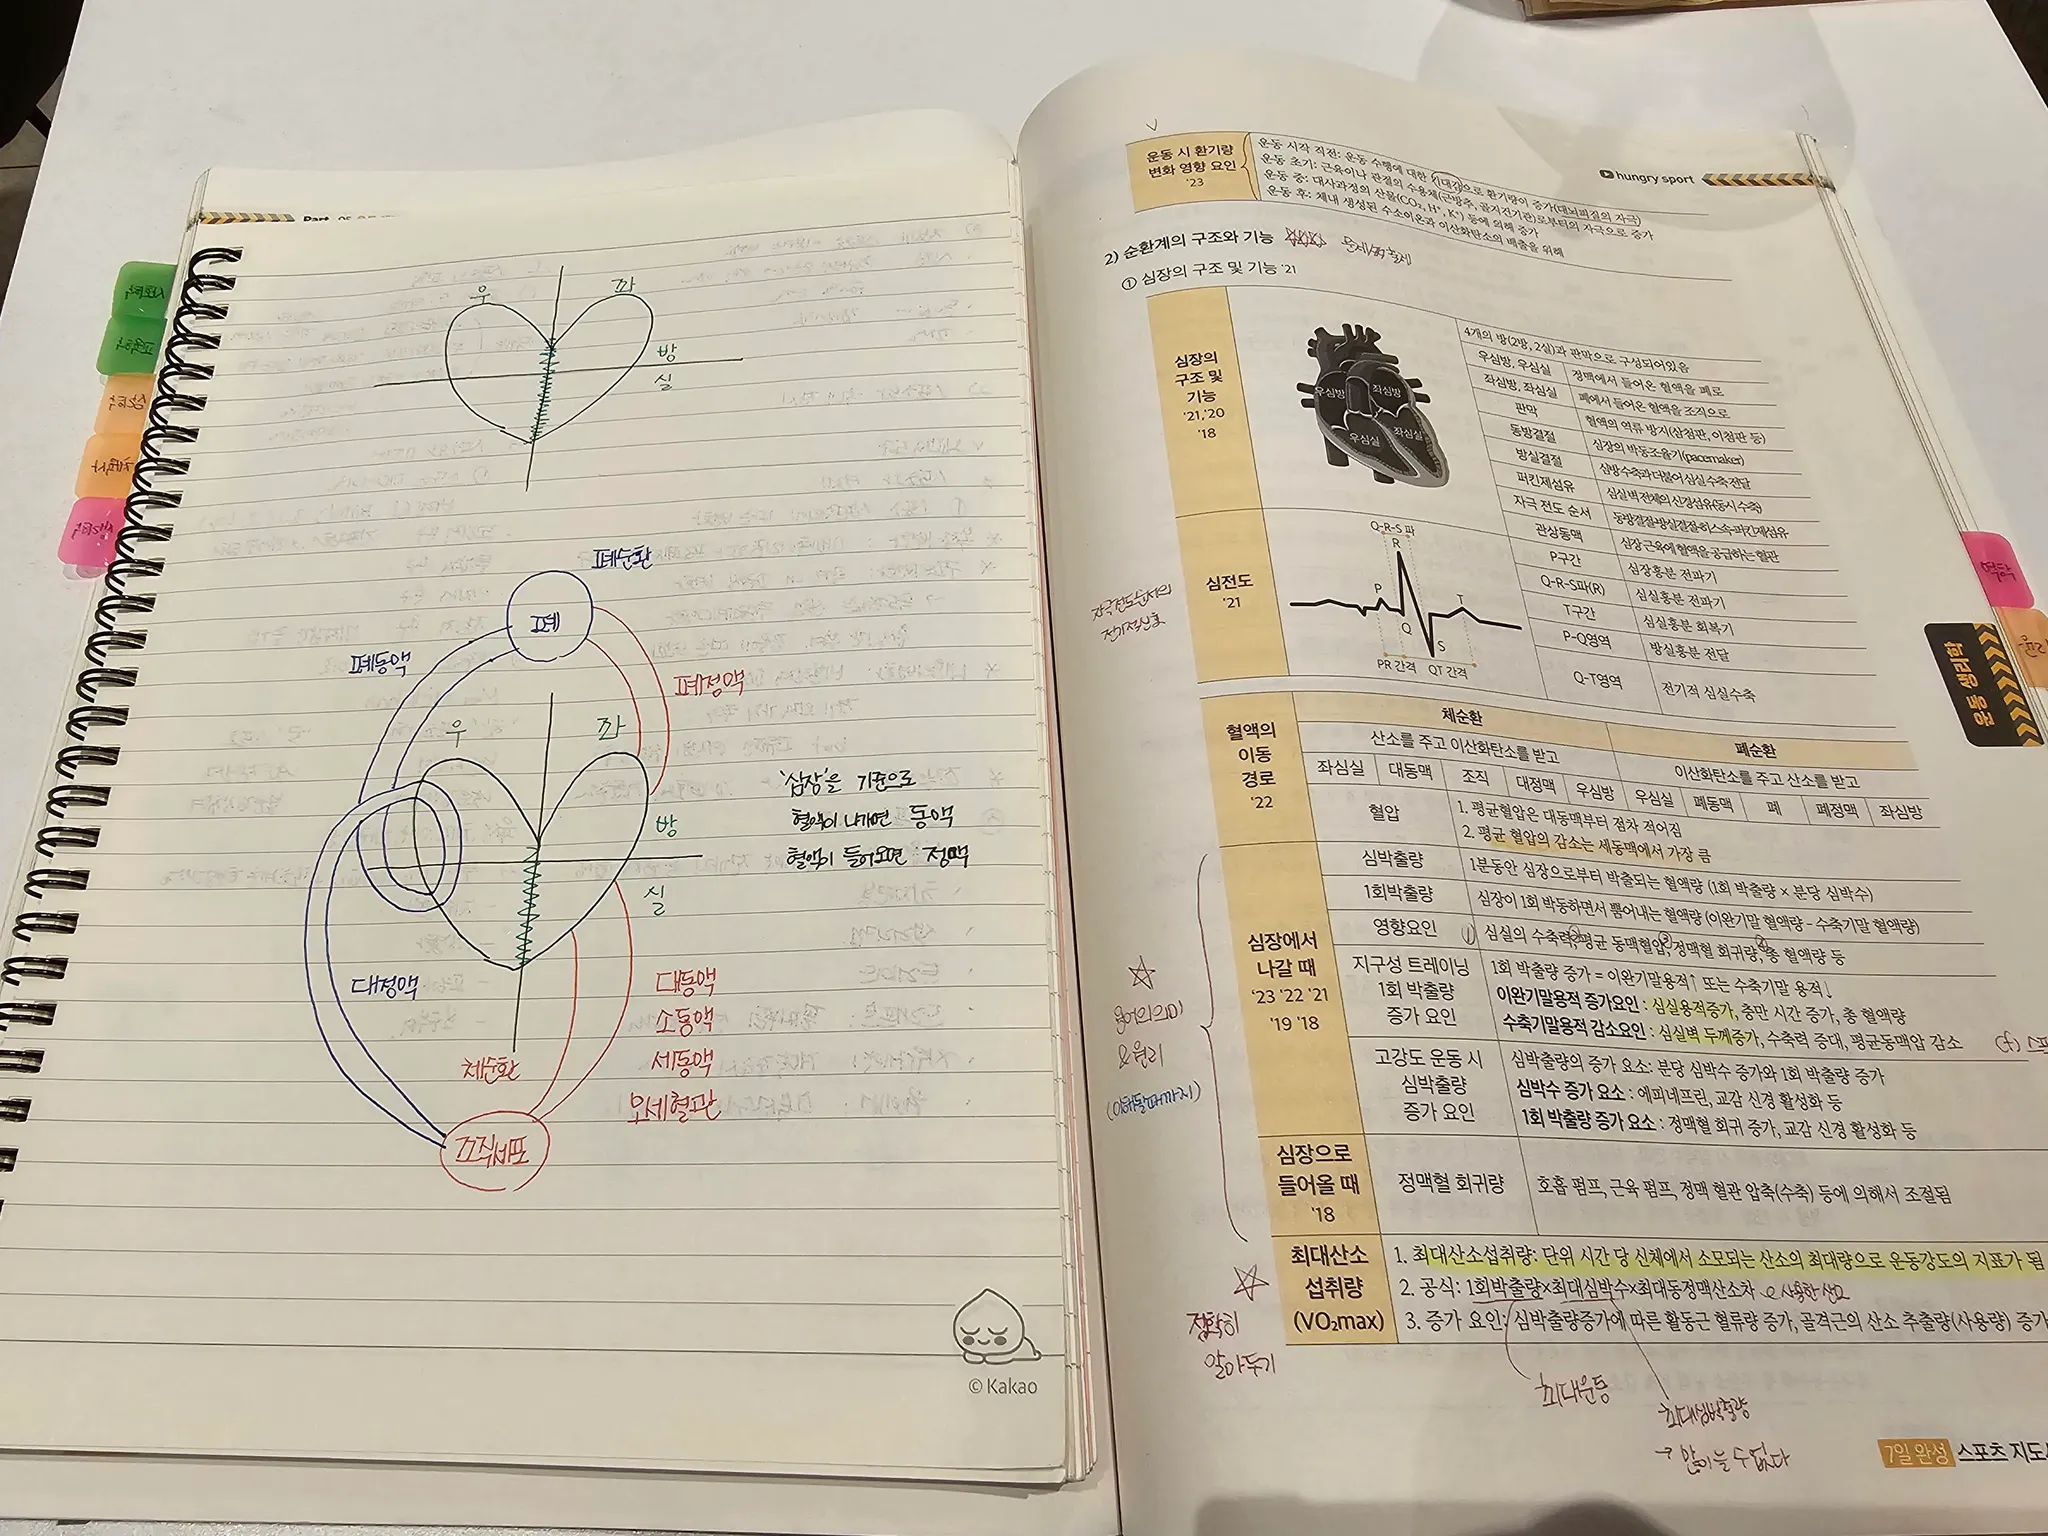 우
좌
방
실
폐순환
폐
폐동맥
폐정맥
우
좌
'심장'을 기준으로
혈액이 나가면 동맥
혈액이 들어오면 : 정맥
방
실
대정맥
대동맥
소동맥
세동맥
모세혈관
체순환
조직세포
© Kakao
운동 시 환기량
변화 영향 요인
'23
운동 시작 직전: 운동 수행에 대한 기대감으로 환기량이 증가(대뇌피질의 자극)
운동 초기: 근육이나 관절의 수용체(근방추, 골지건기관)로부터의 자극으로 증가
운동 중: 대사과정의 산물(CO₂, H⁺, K⁺) 등에 의해 증가
운동 후: 체내 생성된 수소이온과 이산화탄소의 배출을 위해
hungry sport
2) 순환계의 구조와 기능
① 심장의 구조 및 기능 '21
심장의
구조 및
기능
'21,'20
'18
우심방
좌심방
우심실
좌심실
4개의 방(2방, 2실)과 판막으로 구성되어있음
우심방, 우심실 정맥에서 들어온 혈액을 폐로
좌심방, 좌심실 폐에서 들어온 혈액을 조직으로
판막 혈액의 역류 방지(삼첨판, 이첨판 등)
동방결절 심장의 박동조율기(pacemaker)
방실결절 심방수축과 더불어 심실 수축 전달
퍼킨제섬유 심실벽 전체의 신경섬유(동시 수축)
자극 전도 순서 동방결절-방실결절-히스속-퍼킨제섬유
관상동맥 심장 근육에 혈액을 공급하는 혈관
심전도
'21
Q-R-S 파
R
P
T
Q
S
PR 간격 QT 간격
P구간 심장흥분 전파기
Q-R-S파(R) 심실흥분 전파기
T구간 심실흥분 회복기
P-Q영역 방실흥분 전달
Q-T영역 전기적 심실수축
자극전도순서의
전기적신호
혈액의
이동
경로
'22
체순환 폐순환
산소를 주고 이산화탄소를 받고 이산화탄소를 주고 산소를 받고
좌심실 대동맥 조직 대정맥 우심방 우심실 폐동맥 폐 폐정맥 좌심방
혈압
1. 평균혈압은 대동맥부터 점차 적어짐
2. 평균 혈압의 감소는 세동맥에서 가장 큼
심장에서
나갈 때
'23 '22 '21
'19 '18
심박출량 1분동안 심장으로부터 박출되는 혈액량 (1회 박출량 × 분당 심박수)
1회박출량 심장이 1회 박동하면서 뿜어내는 혈액량 (이완기말 혈액량 - 수축기말 혈액량)
영향요인 심실의 수축력, 평균 동맥혈압, 정맥혈 회귀량, 총 혈액량 등
지구성 트레이닝
1회 박출량
증가 요인
1회 박출량 증가 = 이완기말용적↑ 또는 수축기말 용적↓
이완기말용적 증가요인 : 심실용적증가, 충만 시간 증가, 총 혈액량
수축기말용적 감소요인 : 심실벽 두께증가, 수축력 증대, 평균동맥압 감소
고강도 운동 시
심박출량
증가 요인
심박출량의 증가 요소: 분당 심박수 증가와 1회 박출량 증가
심박수 증가 요소 : 에피네프린, 교감 신경 활성화 등
1회 박출량 증가 요소 : 정맥혈 회귀 증가, 교감 신경 활성화 등
용어의의미
&원리
(이해될때까지)
심장으로
들어올 때
'18
정맥혈 회귀량 호흡 펌프, 근육 펌프, 정맥 혈관 압축(수축) 등에 의해서 조절됨
최대산소
섭취량
(VO₂max)
1. 최대산소섭취량: 단위 시간 당 신체에서 소모되는 산소의 최대량으로 운동강도의 지표가 됨
2. 공식: 1회박출량×최대심박수×최대동정맥산소차
사용한 산소
3. 증가 요인: 심박출량증가에 따른 활동근 혈류량 증가, 골격근의 산소 추출량(사용량) 증가
정확히
알아두기
최대운동
최대심박출량
운동 생리학
역학
윤리
7일 완성 스포츠 지도